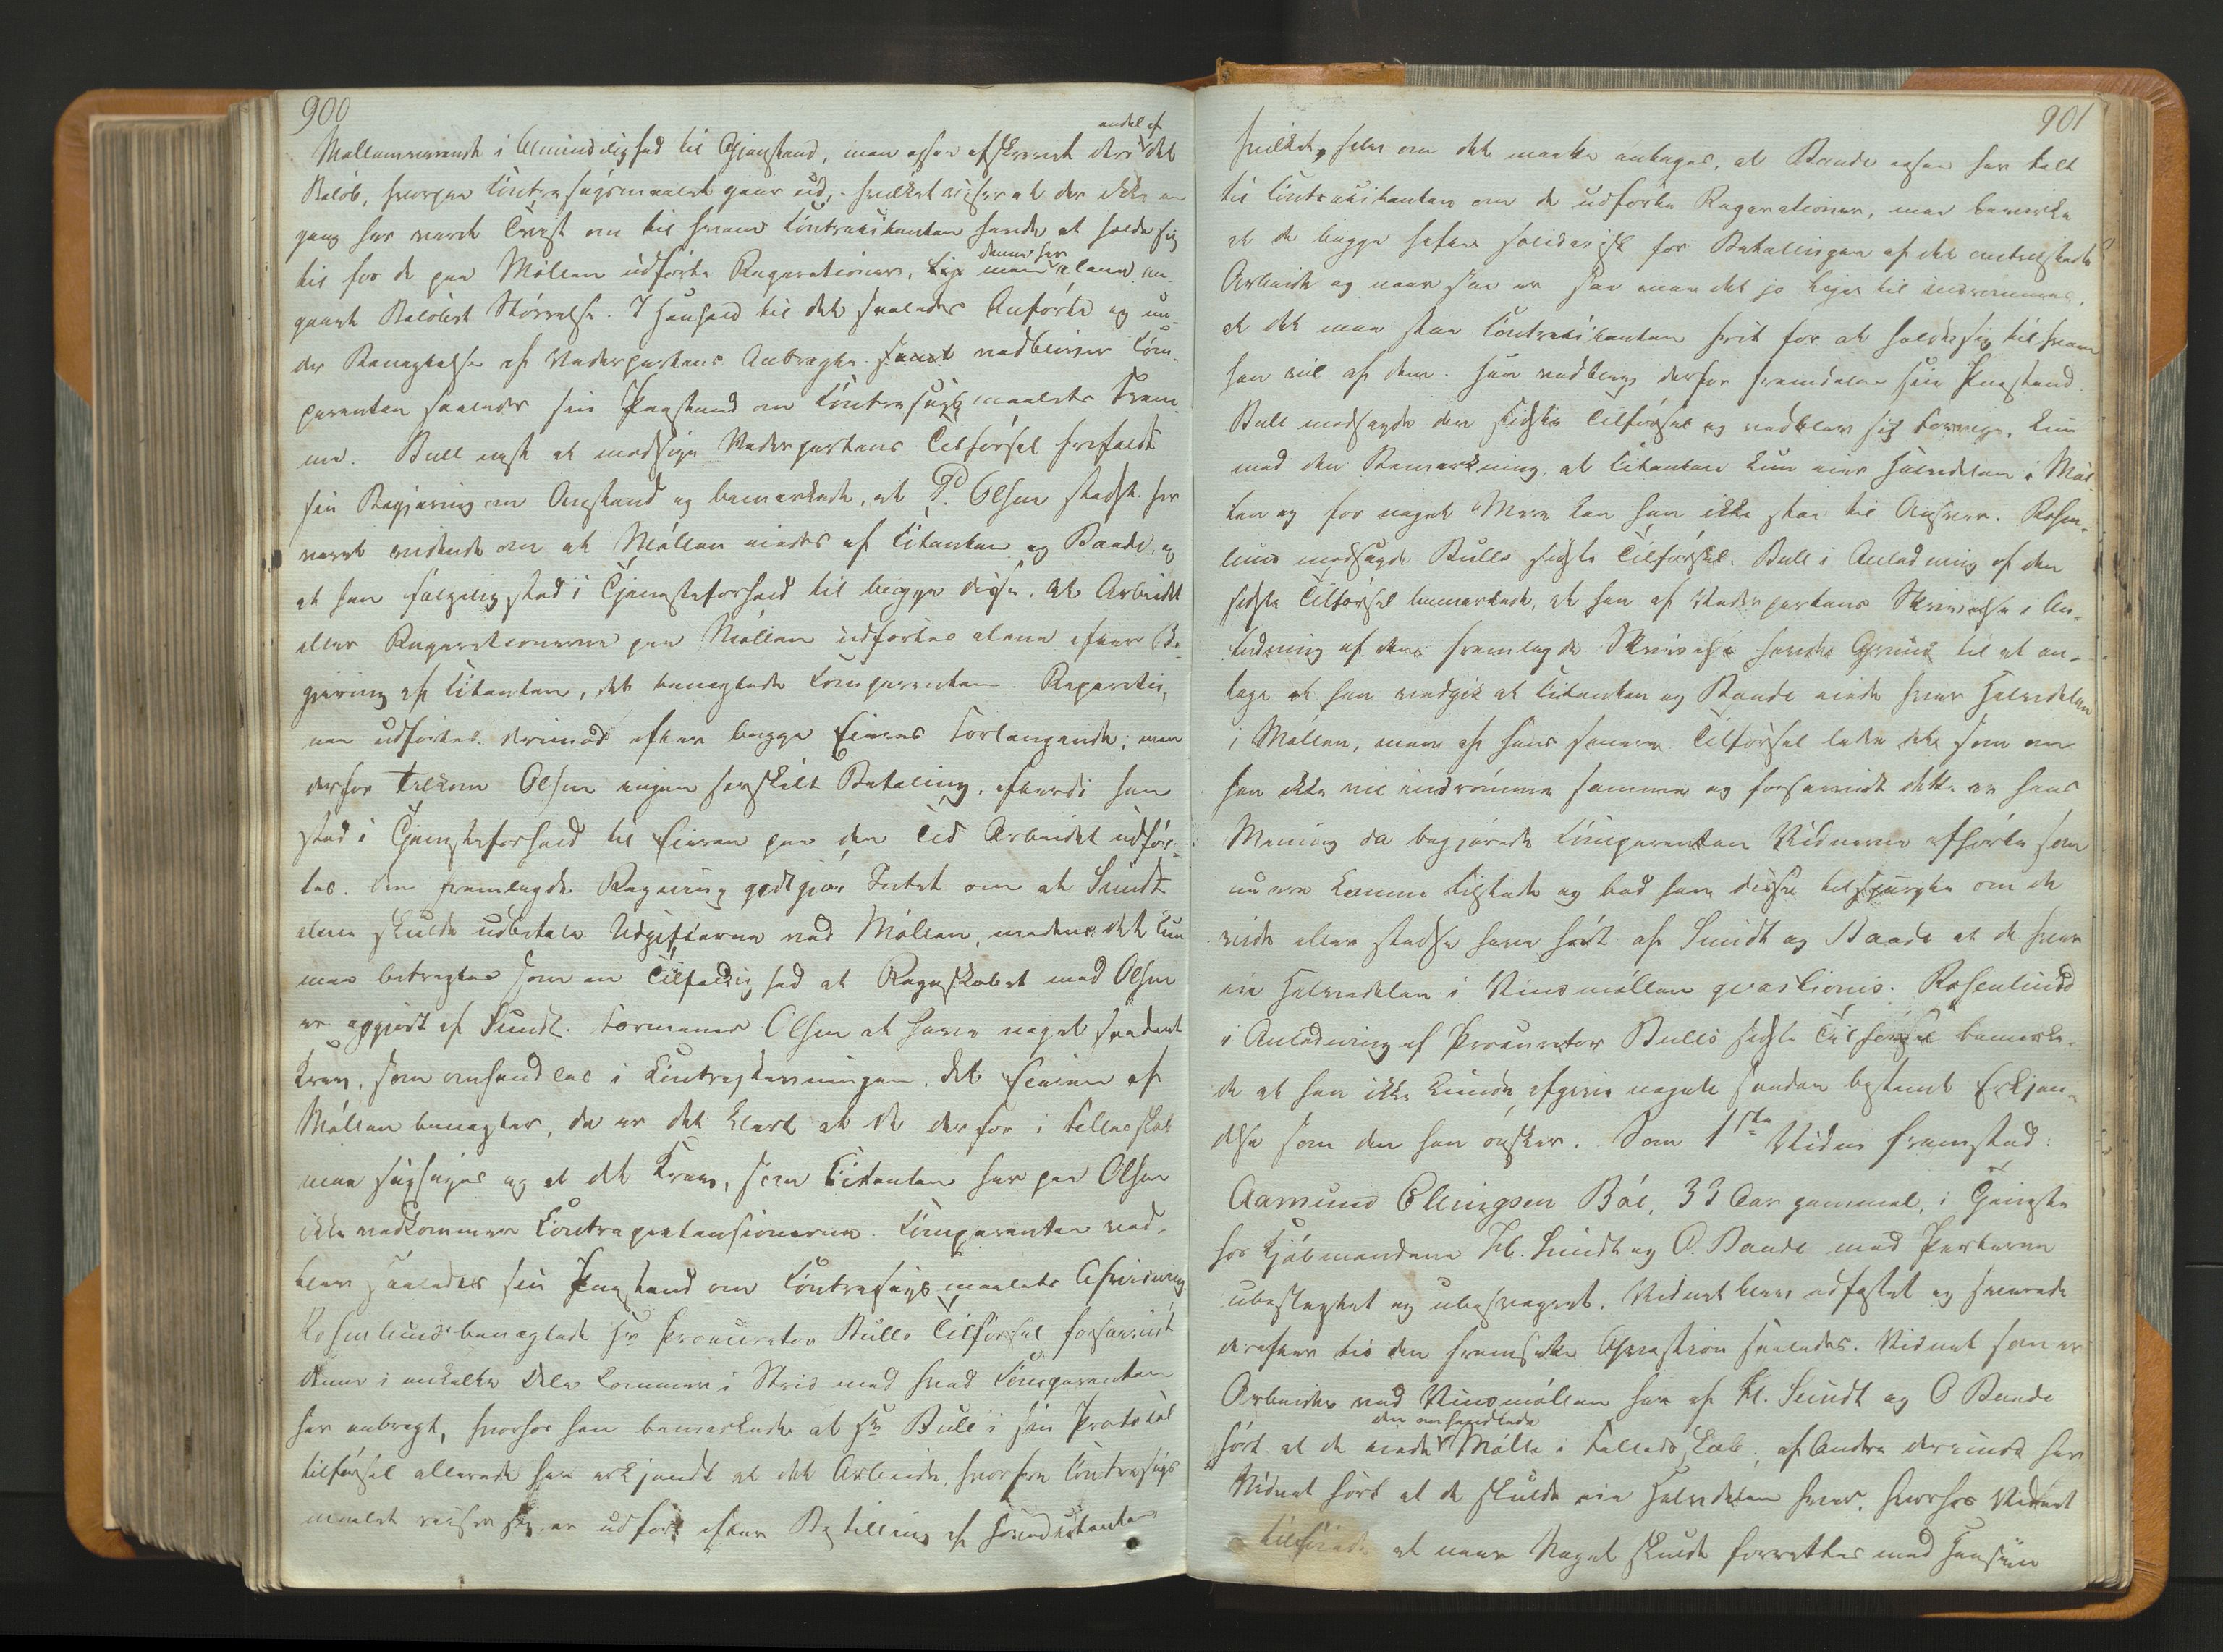 900
Mellemværende i Almindelighed til Gjenstand, men ogsaa afskrevet deres andel af det
Beløb, hvorpaa Contrasøgsmaalet gaar ud, hvilket viser at der ikke en
gang har været Tvist om til hvem Contracitanten havde at holde sig
til for de paa Møllen udførte Reparationer, men denne har alene an¬
gaaet Beløbets Størrelse. I Henhold til det saaledes Anførte og un¬
der Benægtelse af Vederpartens Anbragte vedbliver Com¬
parenten saaledes sin Paastand om Contrasøgsmaalets Frem¬
me. Bull næst at modsige Vederpartens Tilførsel frafaldt
sin Begjæring om Anstand og bemærkede, at P. Olsen stedse har
været vidende om at Møllen eiedes af Citanten og Baade, og
at han følgelig stod i Tjenesteforhold til begge disse. At Arbeidet
eller Reparationerne paa Møllen udførtes alene efter Be¬
gjæring af Citanten, det benægtede Comparenten. Reparatio¬
nen udførtes derimod efter begge Eieres Forlangende; men
derfor tilkom Olsen ingen særskilt Betaling, efterdi han
stod i Tjenesteforhold til Eieren paa den Tid Arbeidet udfør¬
tes. Den fremlagde Regning godtgjør Intet om at Sundt
alene skulde udbetale Udgifterne ved Møllen, medens det kun
maa betragtes som en Tilfældighed at Regnskabet med Olsen
er opgjort af Sundt. Formener Olsen at have noget saadant
Krav, som omhandles i Contrastævningen, det Eieren af
Møllen benægter, da er det klart at de derfor i Fællesskab
maa søgsøges og at det Krav, som Citanten har paa Olsen
ikke vedkommer Contraprætensionerne. Comparenten ved¬
blev saaledes sin Paastand om Contrasøgsmaalets Afvisning
Rosenlund benægtede Hr Procurator Bulls Tilførsel forsaavidt
denne i enkelte Dele kommer i Strid med hvad Comparenten
har anbragt, hvorhos han bemærkede at Hr Bull i sin Protocol
tilførsel allerede har erkjendt at det Arbeide, hvorfra Contrasøgs
maalet reiser sig er udført efter Bestilling af Hovedcitanten
901
hvilket, selv om det maatte antages, at Baade ogsaa har talt
til Contracitanten om de udførte Reparationer, maa bevirke
at de begge hefter solidarisk for Betalingen af det
Arbeide og naar saa er saa maa det jo ligge til indrømmes,
at det maa staa Contracitanten frit for at holde sig til hvem
han vil af dem. Han vedblev derfor fremdeles sin Paastand.
Bull modsagde den sidste Tilførsel og vedblev sit Forrige, kun
med den Bemærkning, at Citanten kun eier Halvdelen i Møl¬
len og for noget Mere kan han ikke staa til Ansvar. Rosen¬
lund modsagde Bulls sidste Tilførsel. Bull i Anledning af den
sidste Tilførsel bemærkede, at han af Vederpartens Skrivelse i An¬
ledning af den fremlagde Skrivelse havde Grund til at an¬
tage at han vedgik at Citanten og Baade eiede hver Halvdelen
i Møllen, men af hans senere Tilførsel lader det som om
han ikke vil indrømme samme og forsaavidt dette er hans
Mening da begjærede Comparenten Vidnerne afhørte som
nu ere komne tilstede og bad han disse tilspurgte om de
vide eller stedse have hørt af Sundt og Baade at de hver
eie Halvdelen i Vindmøllen qvæstionis. Rosenlund
i Anledning af Procurator Bulls sidste Tilførsel bemærke¬
de at han ikke kunde afgive nogen saadan bestemt Erkjen¬
delse som den han ønsker. Som 1ste Vidne fremstod:
Aamund Ellingsen Bøe, 33 Aar gammel, i Tjeneste
hos Kjøbmændene Fl. Sundt og O. Baade med Parterne
ubeslægtet og ubesvogret. Vidnet blev edfæstet og svarede
derefter til den fremsatte Qvæstion saaledes. Vidnet som er
Arbeider ved Vindmøllen har af Fl. Sundt og O Baade
hørt at de eiede den omhandlede Mølle i Fælledskab, af Andre derimod har
Vidnet hørt at de skulde eie Halvdelen hver, hvorhos Vidnet
tilføiede at naar Noget skulde forrettes med Hensyn